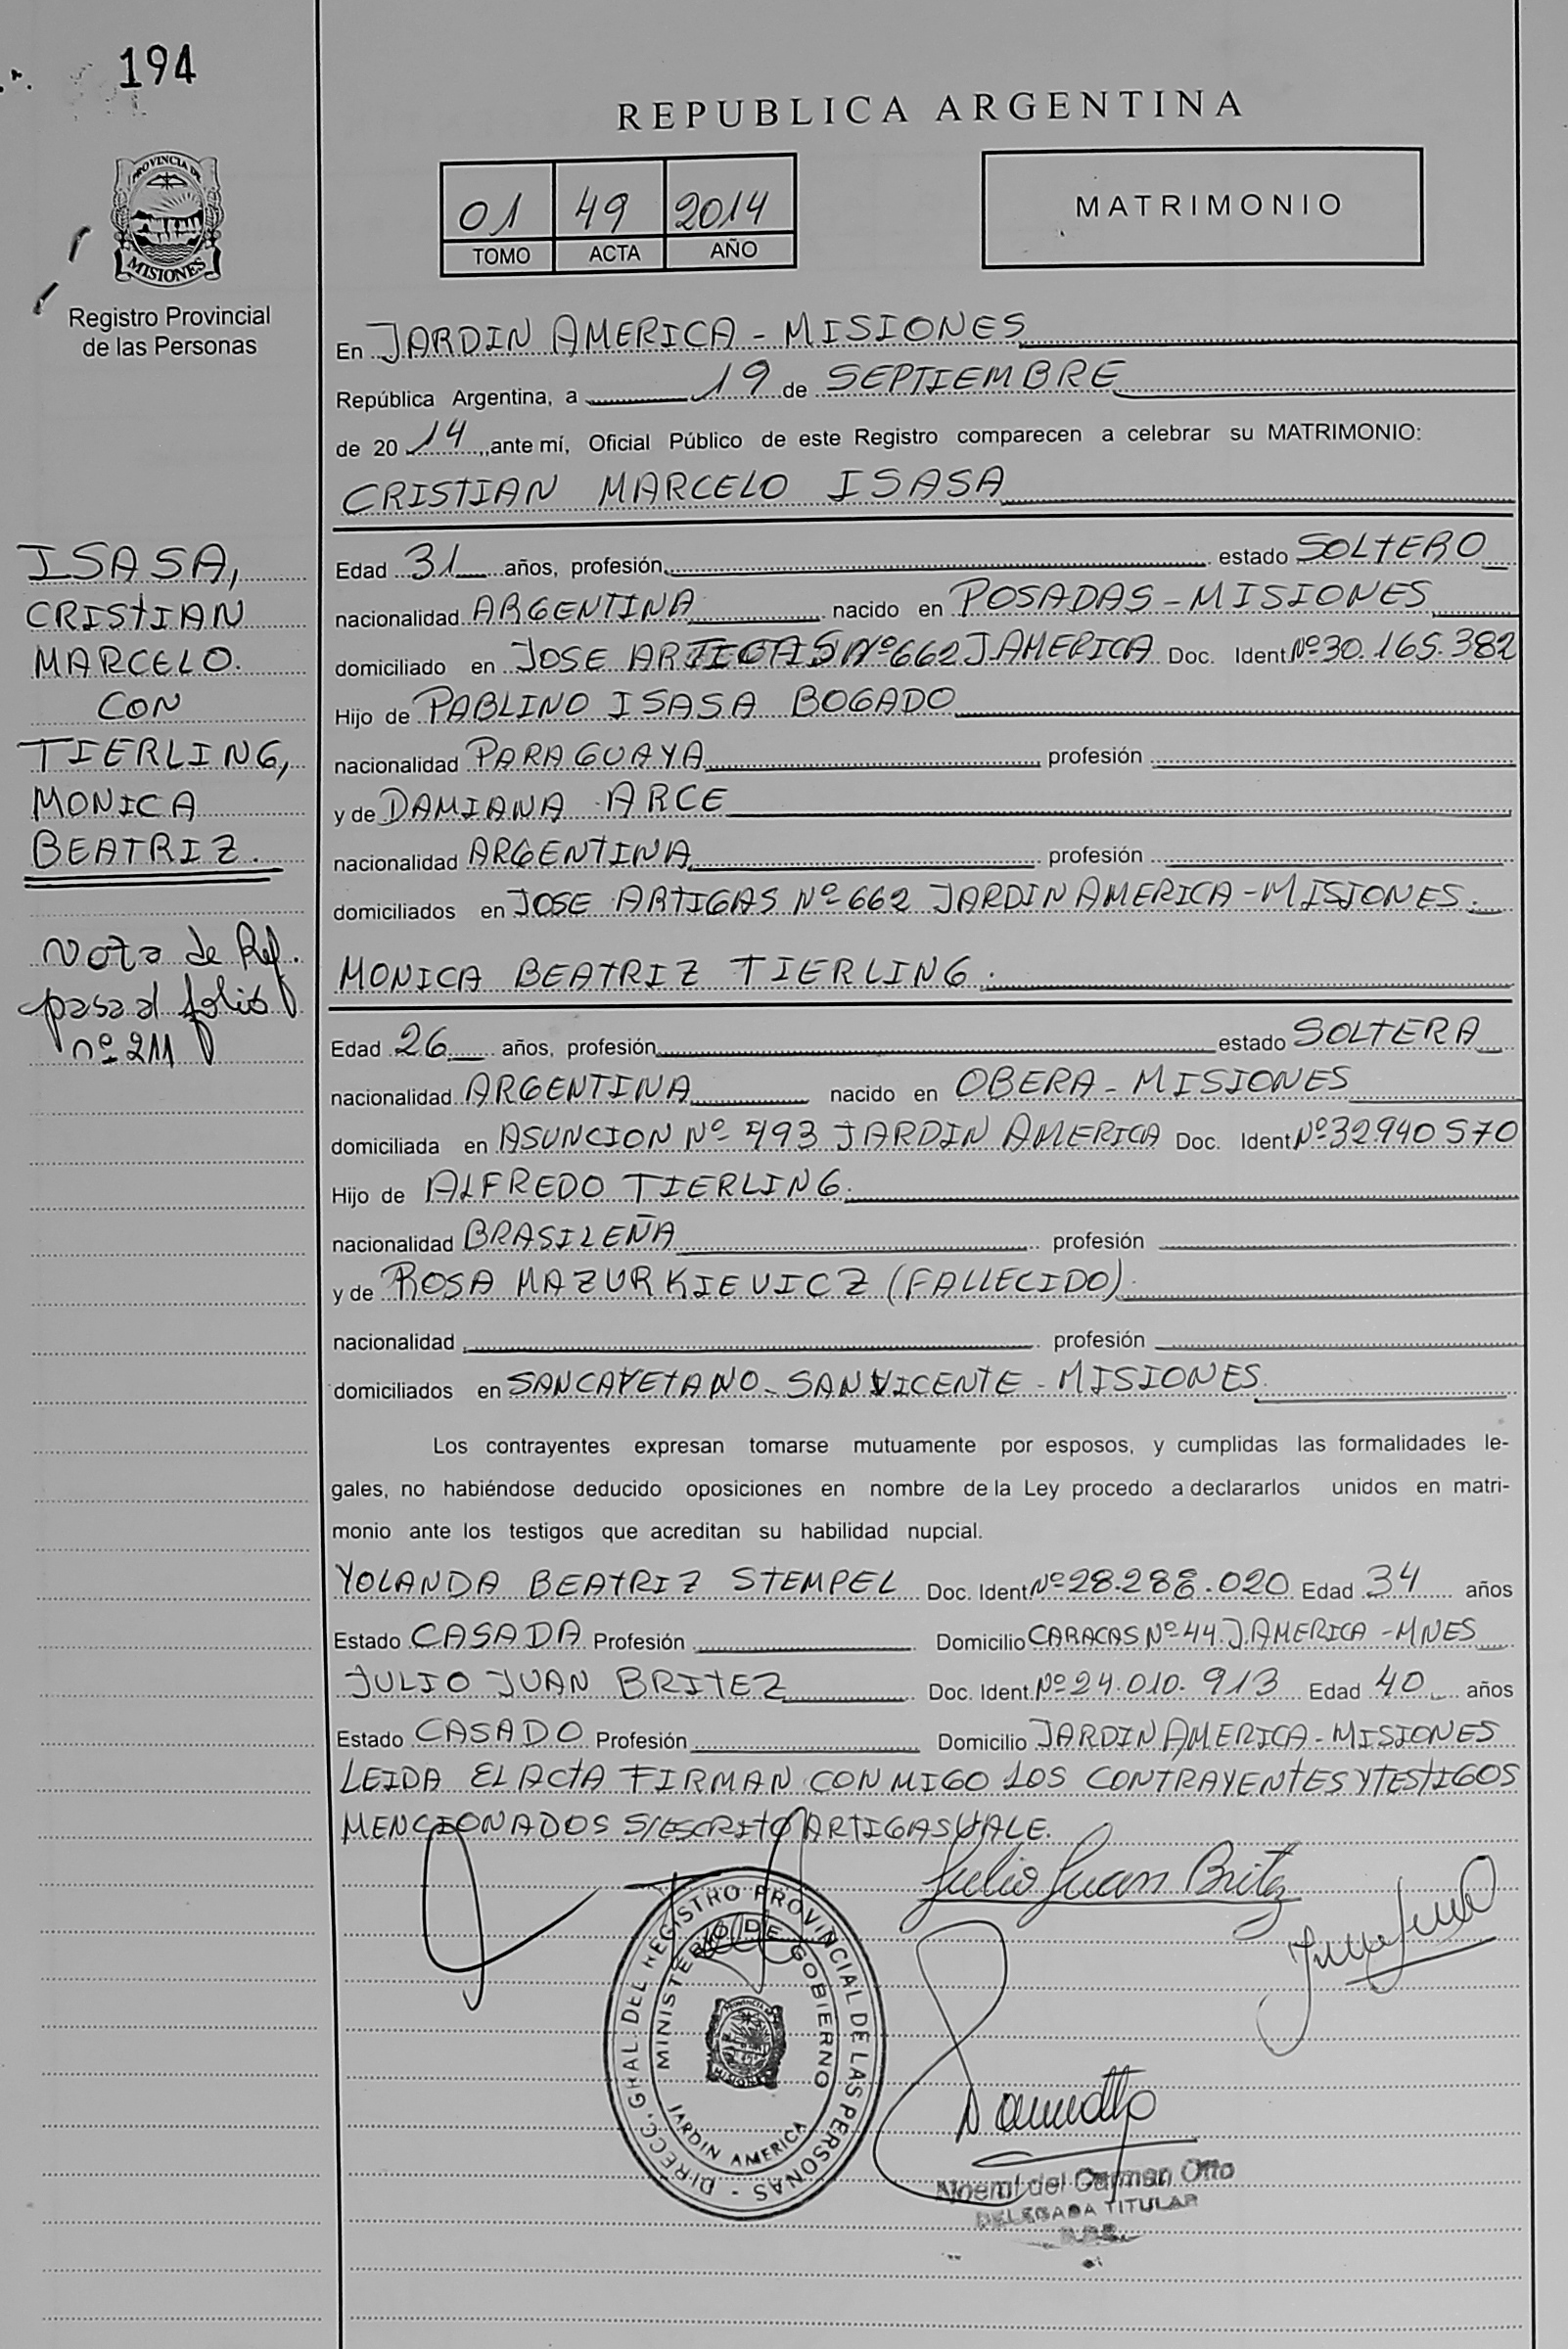 194
PROVINCIA DE
MISIONES
Registro Provincial
de las Personas
REPUBLICA ARGENTINA
01 49 2014
TOMO ACTA AÑO
MATRIMONIO
En JARDIN AMERICA - MISIONES
República Argentina, a 19 de SEPTIEMBRE
de 20 14, ante mí, Oficial Público de este Registro comparecen a celebrar su MATRIMONIO:
CRISTIAN MARCELO ISASA
ISASA,
CRISTIAN
MARCELO.
CON
TIERLING,
MONICA
BEATRIZ.
Nota de Ref.
pasa al folio
nº 211
Edad 31 años, profesión estado SOLTERO
nacionalidad ARGENTINA nacido en POSADAS - MISIONES
domiciliado en JOSE ARTIGAS Nº 662 J AMERICA Doc. Ident Nº 30.165.382
Hijo de PABLINO ISASA BOGADO
nacionalidad PARAGUAYA profesión
y de DAMIANA ARCE
nacionalidad ARGENTINA profesión
domiciliados en JOSE ARTIGAS Nº 662 JARDIN AMERICA - MISIONES.
MONICA BEATRIZ TIERLING.
Edad 26 años, profesión estado SOLTERA
nacionalidad ARGENTINA nacido en OBERA - MISIONES
domiciliada en ASUNCION Nº 493 JARDIN AMERICA Doc. Ident Nº 32.940.570
Hijo de ALFREDO TIERLING.
nacionalidad BRASILEÑA profesión
y de ROSA MAZURKIEVICZ (FALLECIDO).
nacionalidad profesión
domiciliados en SAN CAYETANO - SAN VICENTE - MISIONES.
Los contrayentes expresan tomarse mutuamente por esposos, y cumplidas las formalidades le-
gales, no habiéndose deducido oposiciones en nombre de la Ley procedo a declararlos unidos en matri-
monio ante los testigos que acreditan su habilidad nupcial.
YOLANDA BEATRIZ STEMPEL Doc. Ident Nº 28.288.020 Edad 34 años
Estado CASADA Profesión Domicilio CARACAS Nº 44. J. AMERICA - MNES
JULIO JUAN BRITEZ Doc. Ident. Nº 24.010.913 Edad 40 años
Estado CASADO Profesión Domicilio JARDIN AMERICA - MISIONES
LEIDA EL ACTA FIRMAN CONMIGO LOS CONTRAYENTES Y TESTIGOS
MENCIONADOS S/ESCRITO ARTIGAS VALE.
Julio Juan Britez
DIRECC. GRAL. DEL REGISTRO PROVINCIAL DE LAS PERSONAS -
MINISTERIO DE GOBIERNO
JARDIN AMERICA
Noemí del Carmen Otto
DELEGADA TITULAR